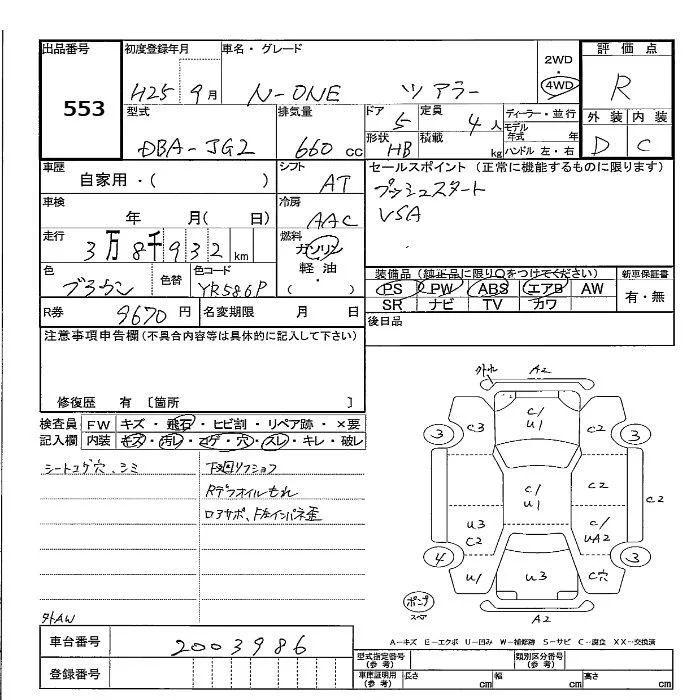 出品番号
553
初度登録年月
H25 9月
車名・グレード
N-ONE ツアラー
2WD
・
4WD
評価点
R
型式
DBA-JG2
排気量
660 cc
ドア
5
定員
4人
ディーラー・並行
モデル年式 年
形状
HB
積載
kg
ハンドル 左・右
外装 内装
D C
車歴
自家用・( )
シフト
AT
セールスポイント(正常に機能するものに限ります)
プッシュスタート
VSA
車検
年 月( 日)
冷房
AAC
走行
3万8千932km
燃料
ガソリン
軽油
( )
色
ブラウン
色替
色コード
YR586P
装備品(純正品に限り○をつけてください)
PS PW ABS エアB AW
SR ナビ TV カワ
新車保証書
有・無
R券
9670円
名変期限 月 日
後日品
注意事項申告欄(不具合内容等は具体的に記入して下さい)
修復歴 有 〔箇所 〕
検査員記入欄
FW キズ・飛石・ヒビ割・リペア跡・×要
内装 キズ・汚レ・コゲ・穴・スレ・キレ・破レ
シートコゲ穴、シミ
下廻リフション
Rデフオイルもれ
ロアサポ、F左インパネ歪
外AW
車台番号
2003986
登録番号
外れ A2
C3
C/
U1
C2
3
3
C/
U1
C2
C2
U3
C2
C/
UA2
4
3
U1
U3
C穴
A2
A−キズ E−エクボ U−凹み W−補修跡 S−サビ C−腐食 XX−交換済
型式指定番号(参考)
類別区分番号(参考)
車庫証明用(参考)
長さ cm
幅 cm
高さ cm